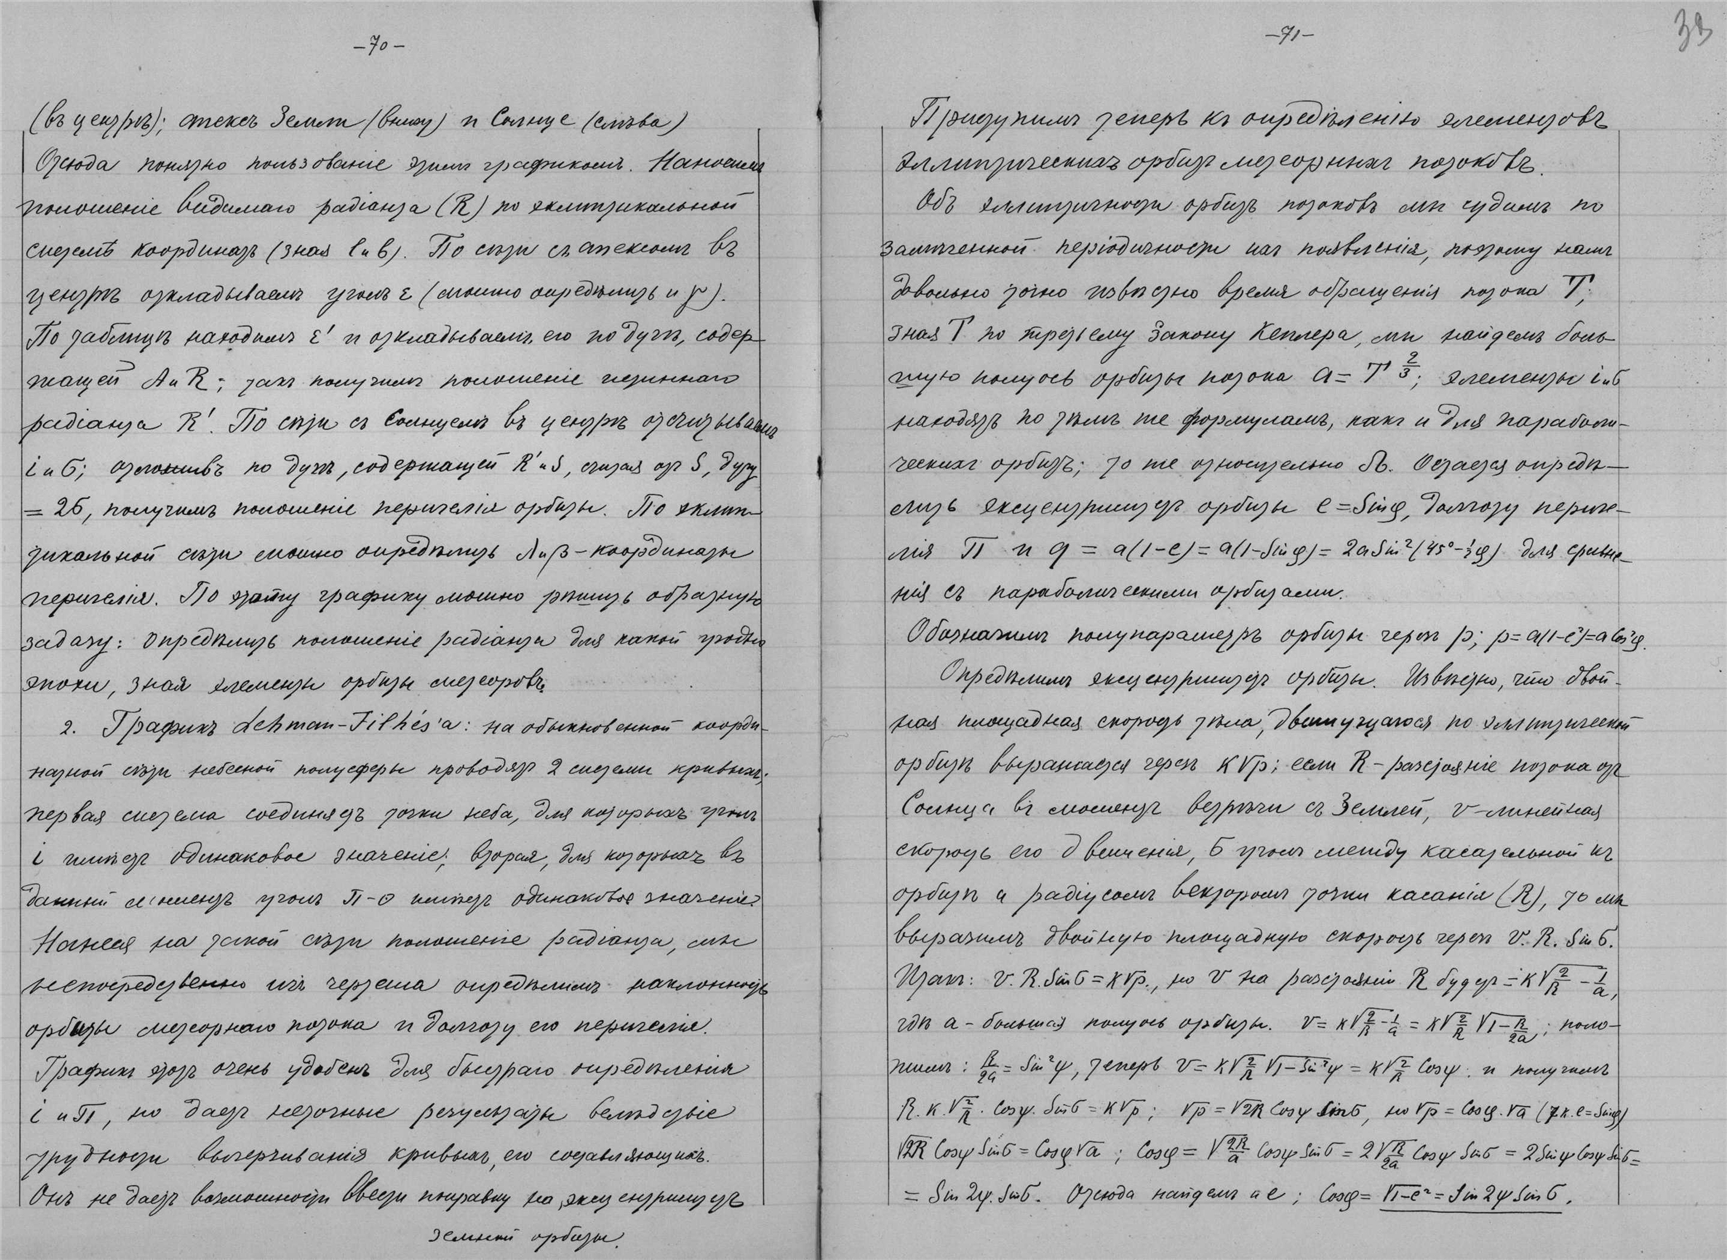 -70-
(въ центрѣ); апексъ Земли (внизу) и Солнце (слѣва)
Отсюда понятно пользованіе этимъ графикомъ. Наносимъ
положеніе видимаго радіанта (R) по эклиптикальной
системѣ координатъ (зная l и b). По сѣти съ апексомъ въ
центрѣ откладываемъ уголъ ε (можно опредѣлить и γ).
По таблицѣ находимъ ε' и откладываемъ его по дугѣ, содер-
жащей A и R; такъ получимъ положеніе истиннаго
радіанта R'. По сѣти съ Солнцемъ въ центрѣ отсчитываемъ
i и σ; отложивъ по дугѣ, содержащей R' и S, считая отъ S, дугу
= 2σ, получимъ положеніе перигелія орбиты. По эклип-
тикальной сѣти можно опредѣлить λ и β - координаты
перигелія. По этому графику можно рѣшить обратную
задачу: опредѣлить положеніе радіанта для какой угодно
эпохи, зная элементы орбиты метеоровъ.
2. Графикъ Lehman-Filhés'a: на обыкновенной коорди-
натной сѣти небесной полусферы проводятъ 2 системы кривыхъ;
первая система соединяетъ точки неба, для которыхъ уголъ
i имѣетъ одинаковое значеніе; вторая, для которыхъ въ
данный моментъ уголъ П-☉ имѣетъ одинаковое значеніе.
Нанеся на такой сѣти положеніе радіанта, мы
непосредственно изъ чертежа опредѣлимъ наклонность
орбиты метеорнаго потока и долготу его перигелія.
Графикъ этотъ очень удобенъ для быстраго опредѣленія
i и П, но даетъ неточные результаты вслѣдствіе
трудности вычерчиванія кривыхъ, его составляющихъ.
Онъ не даетъ возможности ввести поправку на эксцентриситетъ
земной орбиты.
-71-
Приступимъ теперь къ опредѣленію элементовъ
эллиптическихъ орбитъ метеорныхъ потоковъ.
Объ эллиптичности орбитъ потоковъ мы судимъ по
замѣченной періодичности ихъ появленія, поэтому намъ
довольно точно извѣстно время обращенія потока T;
зная T по третьему закону Кеплера, мы найдемъ боль-
шую полуось орбиты потока a = T^{2/3}; элементы i и σ
находятъ по тѣмъ же формуламъ, какъ и для параболи-
ческихъ орбитъ; то же относительно ☊. Остается опредѣ-
лить эксцентриситетъ орбиты e = Sinφ, долготу периге-
лія П и q = a(1-e) = a(1-Sinφ) = 2aSin²(45°-½φ) для сравне-
нія съ параболическими орбитами.
Обозначимъ полупараметръ орбиты черезъ p; p = a(1-e²) = aCos²φ.
Опредѣлимъ эксцентриситетъ орбиты. Извѣстно, что двой-
ная площадная скорость тѣла, движущагося по эллиптической
орбитѣ выражается черезъ K√p; если R - разстояніе потока отъ
Солнца въ моментъ встрѣчи съ Землей, v - линейная
скорость его движенія, σ уголъ между касательной къ
орбитѣ и радіусомъ векторомъ точки касанія (R), то мы
выразимъ двойную площадную скорость черезъ v. R. Sinσ.
Итакъ: v. R. Sinσ = K√p, но v на разстояніи R будетъ = K√(2/R - 1/a),
гдѣ a - большая полуось орбиты. v = K√(2/R - 1/a) = K√(2/R) √(1 - R/2a); поло-
жимъ: R/2a = Sin²ψ, теперь v = K√(2/R) √(1-Sin²ψ) = K√(2/R) Cosψ. и получимъ
R. K. √(2/R). Cosψ. Sinσ = K√p; √p = √2R Cosψ Sinσ, но √p = Cosφ. √a (т.к. e = Sinφ)
√2R Cosψ Sinσ = Cosφ√a; Cosφ = √(2R/a) Cosψ Sinσ = 2√(R/2a) Cosψ Sinσ = 2Sinψ Cosψ Sinσ =
= Sin2ψ. Sinσ. Отсюда найдемъ и e; Cosφ = √(1-e²) = Sin2ψ Sinσ.